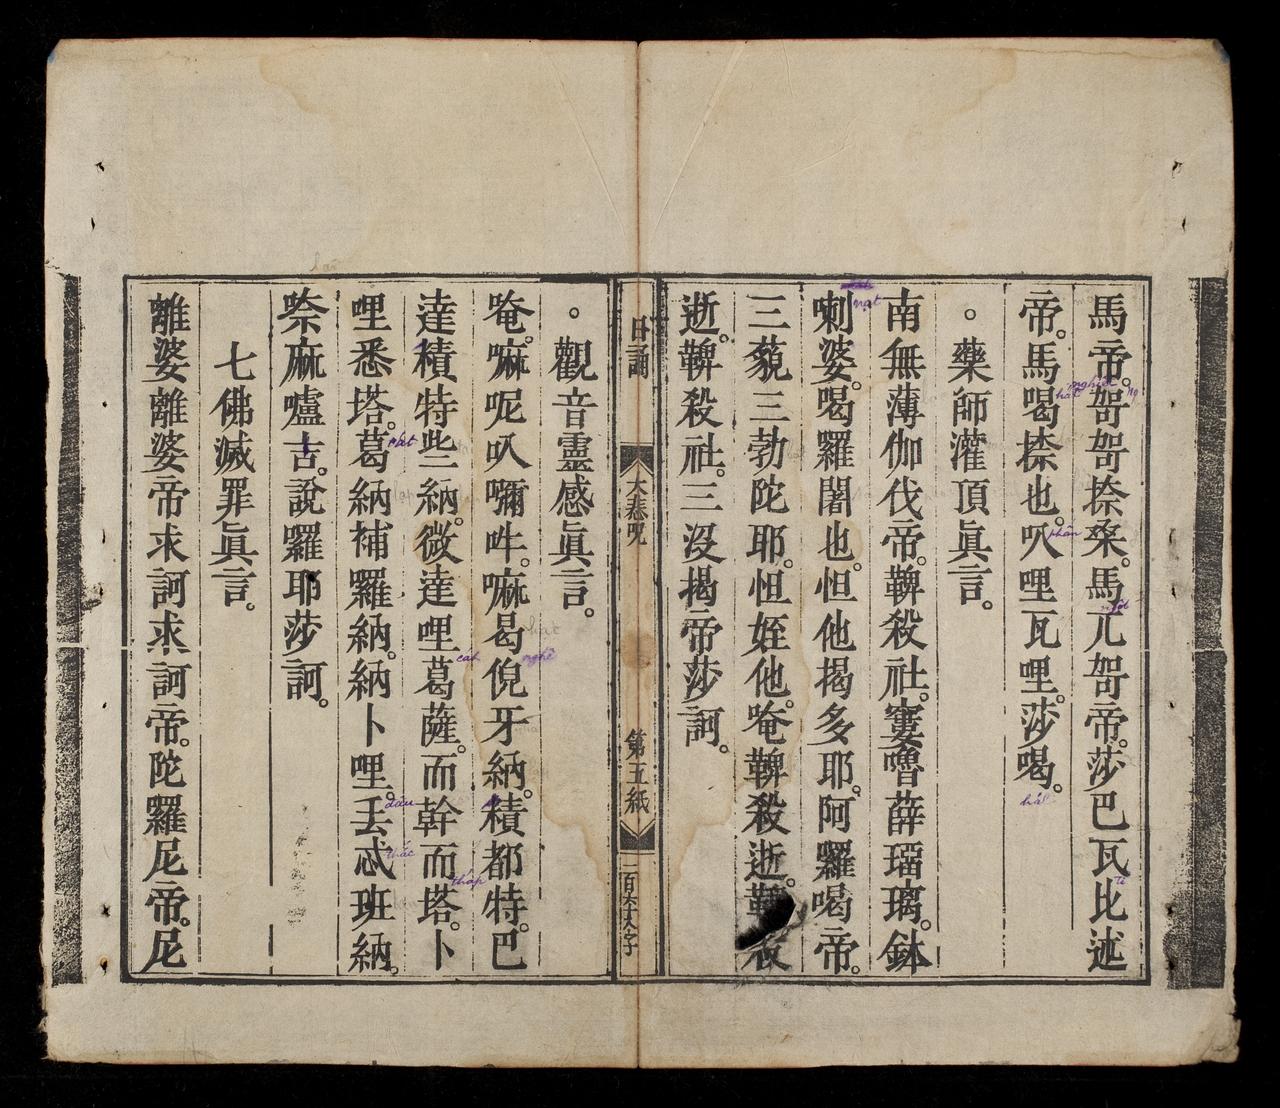 馬帝。哿哿捺桑。馬兀哿帝。莎巴瓦比述
帝。馬喝捺也。㕥哩瓦哩。莎喝。
。藥師灌頂眞言。
南無薄伽伐帝。鞞殺社。窶嚕薜瑠璃。鉢
喇婆。喝羅闍也。怛他揭多耶。阿羅喝帝。
三藐三勃陀耶。怛姪他。唵鞞殺逝。鞞殺
逝。鞞殺社。三沒揭帝莎訶。
日誦 大悲咒 第五紙
。觀音靈感眞言。
唵。嘛呢叭嚩吽。嘛曷倪牙納。積都特。巴
達積特些納。微達哩葛薩。而幹而塔。卜
哩悉塔。葛納補羅納。納卜哩。丟忒班納。
㮈麻嚧吉。說囉耶莎訶。
七佛滅罪眞言。
離婆離婆帝求訶求訶帝。陀羅尼帝。尼
nạt
nghiệt
phân
ngột
hát
phát
cát
nghê
đâu
thắc
tháp